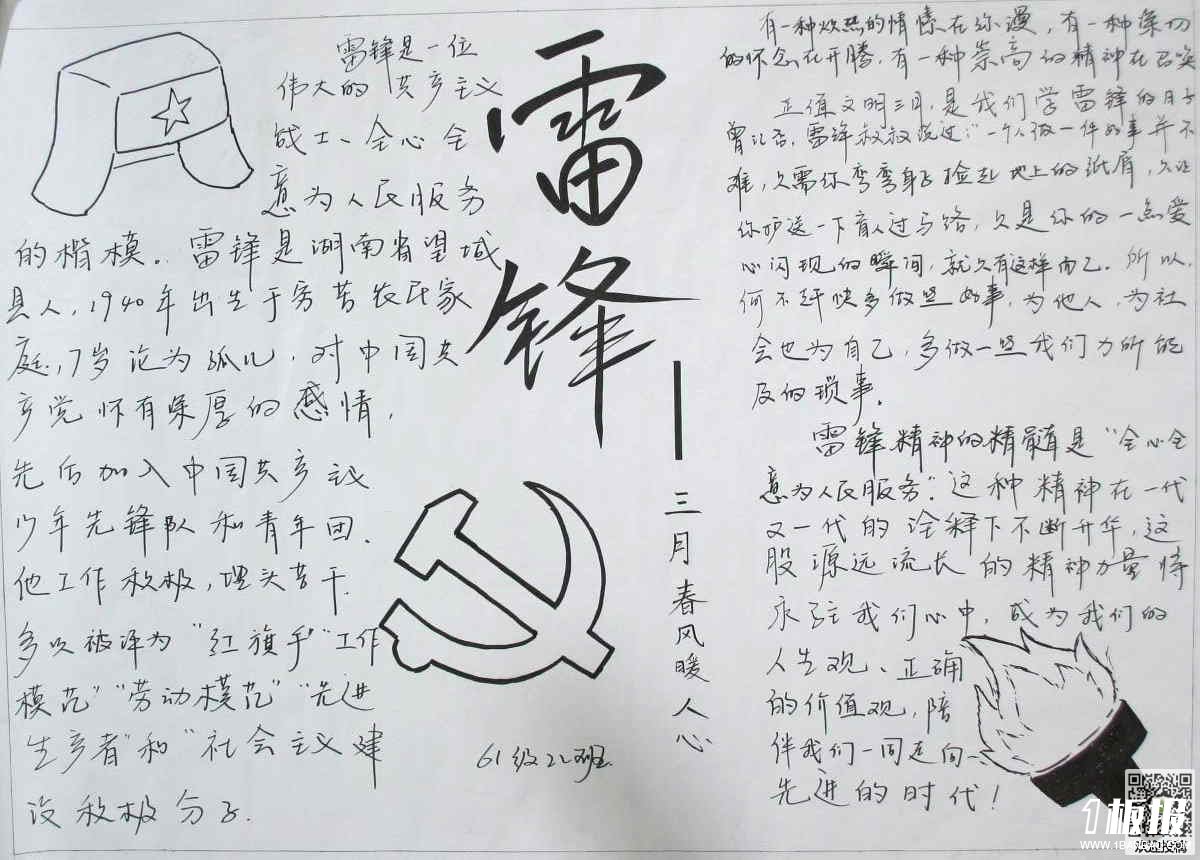 雷锋是一位
伟大的共产主义
战士、全心全
意为人民服务
的楷模。雷锋是湖南省望城
县人,1940年出生于穷苦农民家
庭,7岁沦为孤儿,对中国共
产党怀有深厚的感情,
先后加入中国共产主义
少年先锋队和青年团.
他工作积极,埋头苦干.
多次被评为“红旗手”“工作
模范”“劳动模范”“先进
生产者”和“社会主义建
设积极分子.
雷锋
三月春风暖人心
61级22班
有一种炽热的情愫在弥漫,有一种深切
的怀念在升腾,有一种崇高的精神在召唤
正值文明三月,是我们学雷锋的月子
曾记否,雷锋叔叔说过:“一个人做一件好事并不
难,只需你弯弯身子捡起地上的纸屑,只让
你护送一下盲人过马路,只是你的一点爱
心闪现的瞬间,就只有这样而已.所以,
何不赶快多做些好事,为他人,为社
会也为自己,多做一些我们力所能
及的琐事.
雷锋精神的精髓是“全心全
意为人民服务”.这种精神在一代
又一代的诠释下不断升华,这
股源远流长的精神力量将
永驻我们心中,成为我们的
人生观、正确
的价值观,陪
伴我们一同走向
先进的时代!
1板报
WWW.1BANBAO.COM
欢迎投稿